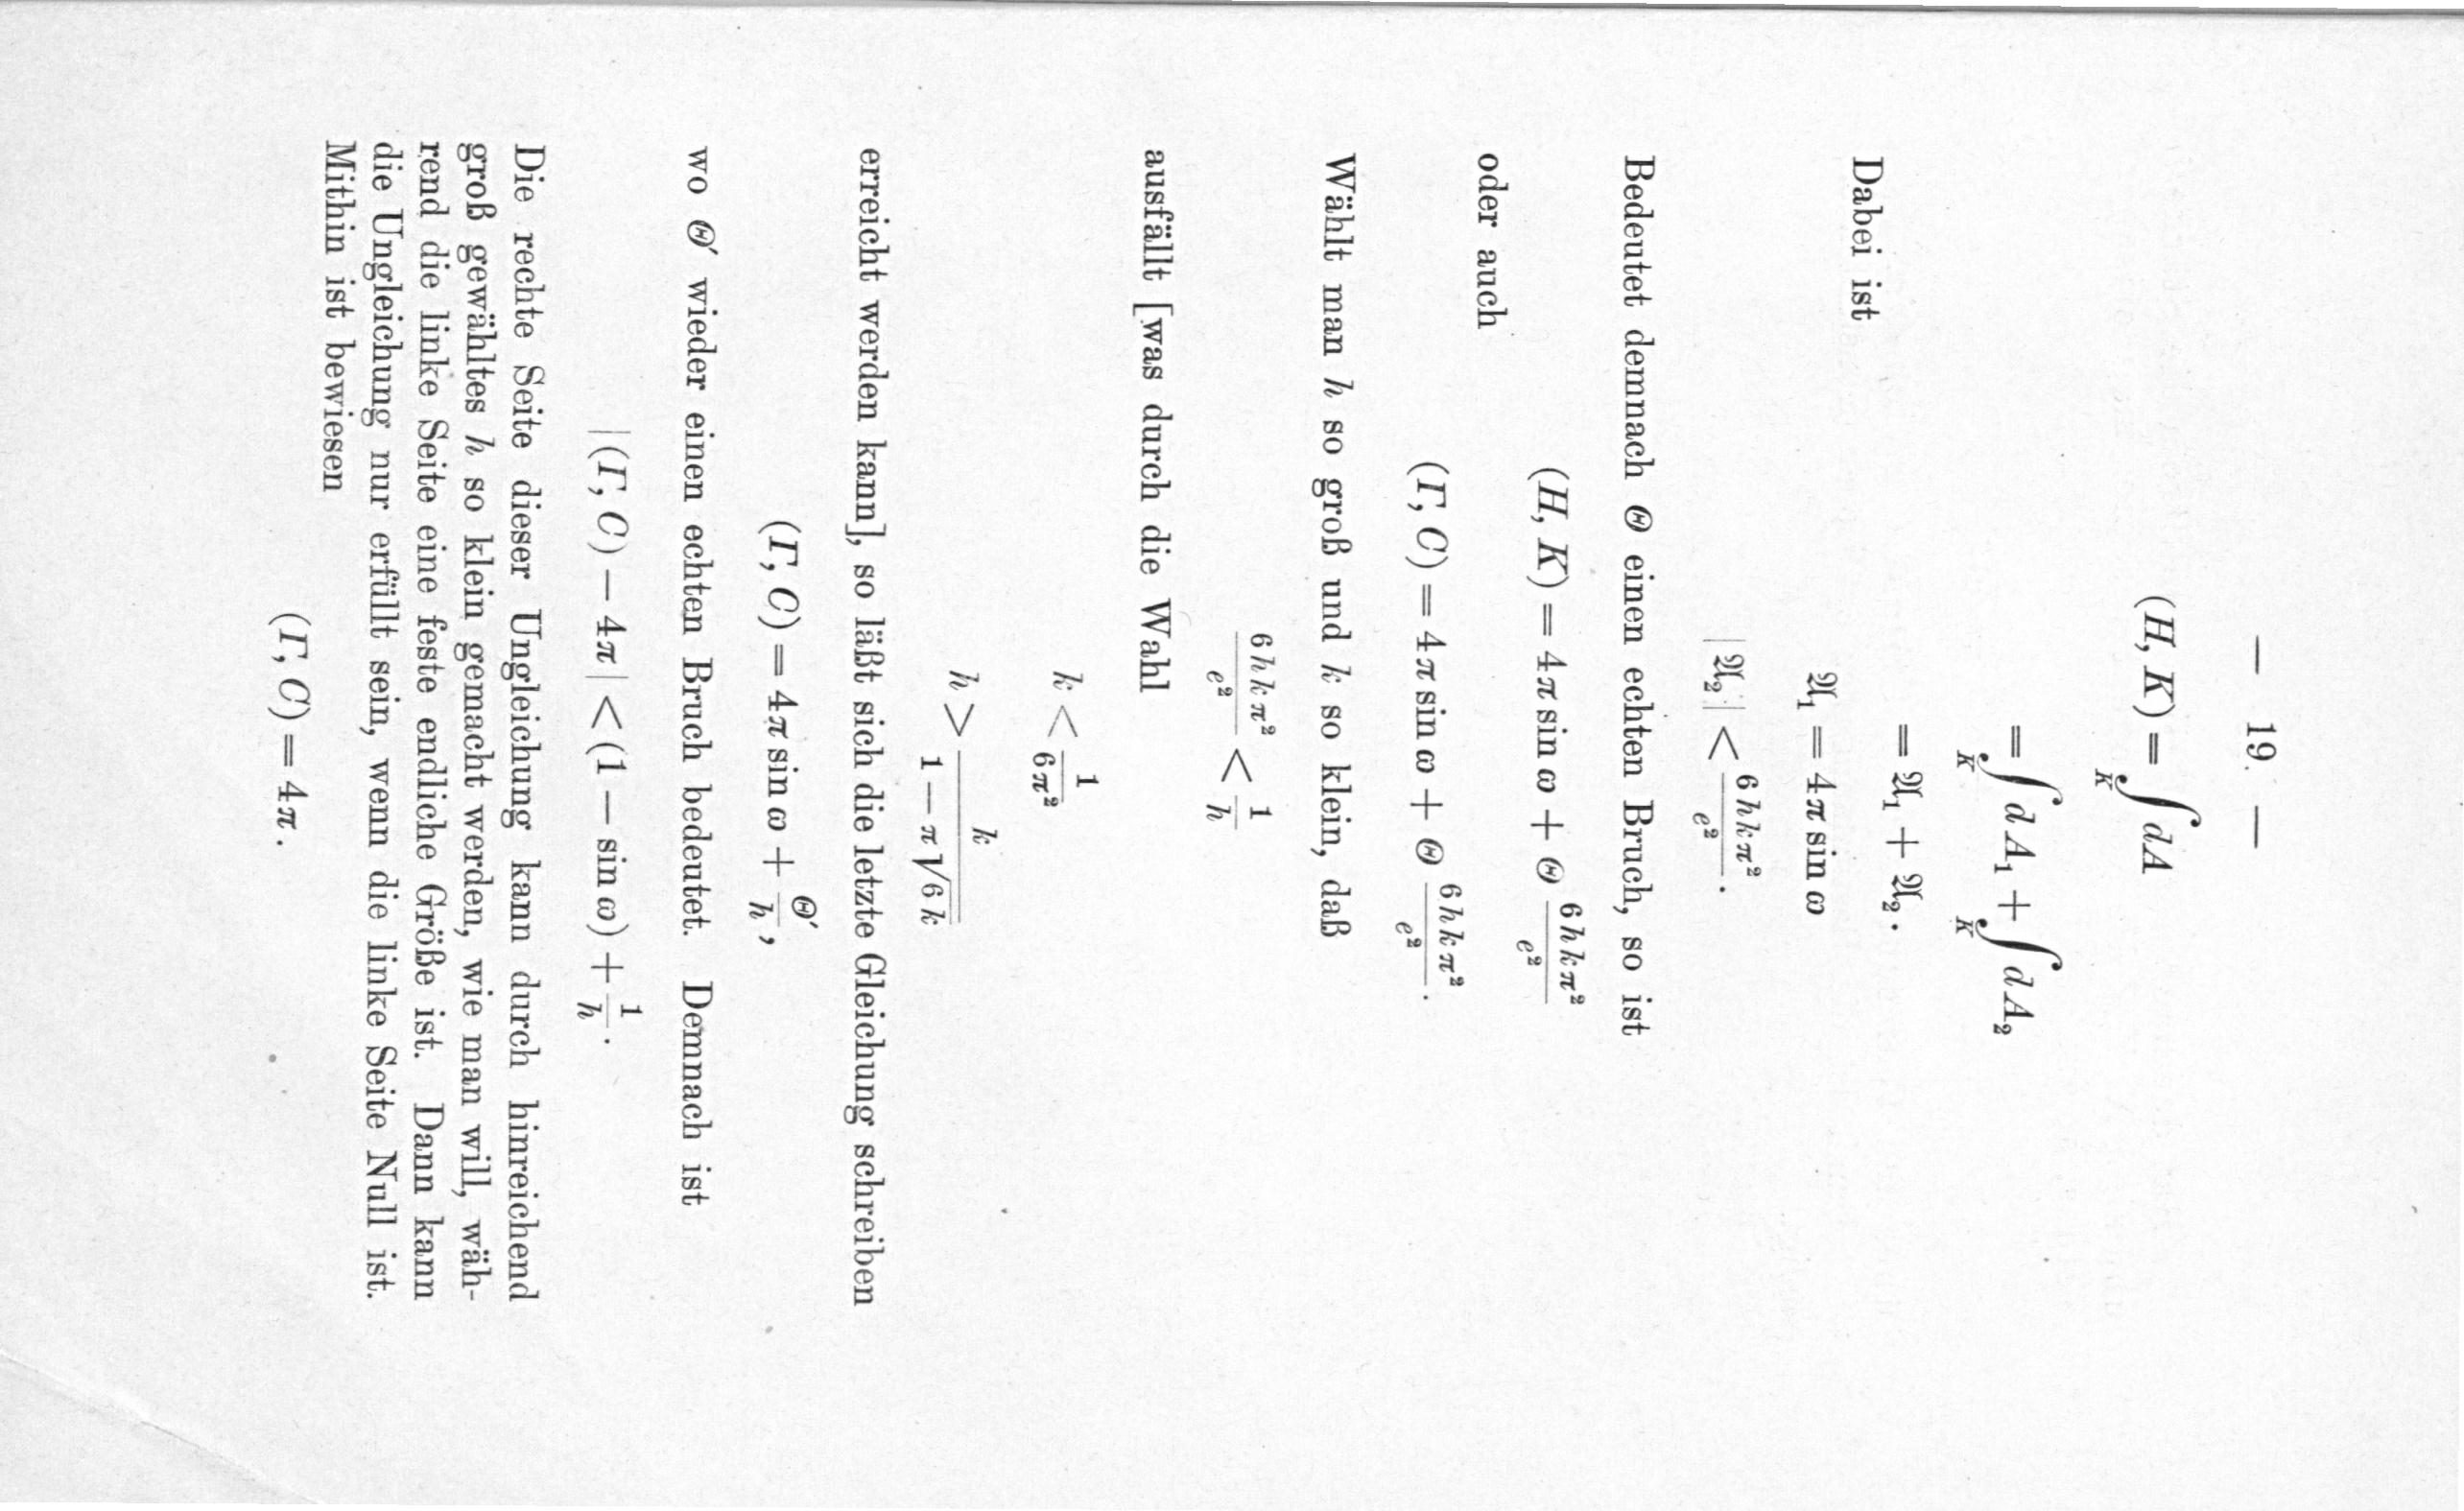 — 19 —
(H, K) = ∫_K dA
= ∫_K dA₁ + ∫_K dA₂
= 𝔄₁ + 𝔄₂.
Dabei ist
𝔄₁ = 4π sin ω
|𝔄₂| < 6hkπ²/e².
Bedeutet demnach Θ einen echten Bruch, so ist
(H, K) = 4π sin ω + Θ 6hkπ²/e²
oder auch
(Γ, C) = 4π sin ω + Θ 6hkπ²/e².
Wählt man h so groß und k so klein, daß
6hkπ²/e² < 1/h
ausfällt [was durch die Wahl
k < 1/6π²
h > k/(1 − π√(6k))
erreicht werden kann], so läßt sich die letzte Gleichung schreiben
(Γ, C) = 4π sin ω + Θ′/h,
wo Θ′ wieder einen echten Bruch bedeutet. Demnach ist
|(Γ, C) − 4π| < (1 − sin ω) + 1/h.
Die rechte Seite dieser Ungleichung kann durch hinreichend
groß gewähltes h so klein gemacht werden, wie man will, wäh-
rend die linke Seite eine feste endliche Größe ist. Dann kann
die Ungleichung nur erfüllt sein, wenn die linke Seite Null ist.
Mithin ist bewiesen
(Γ, C) = 4π.